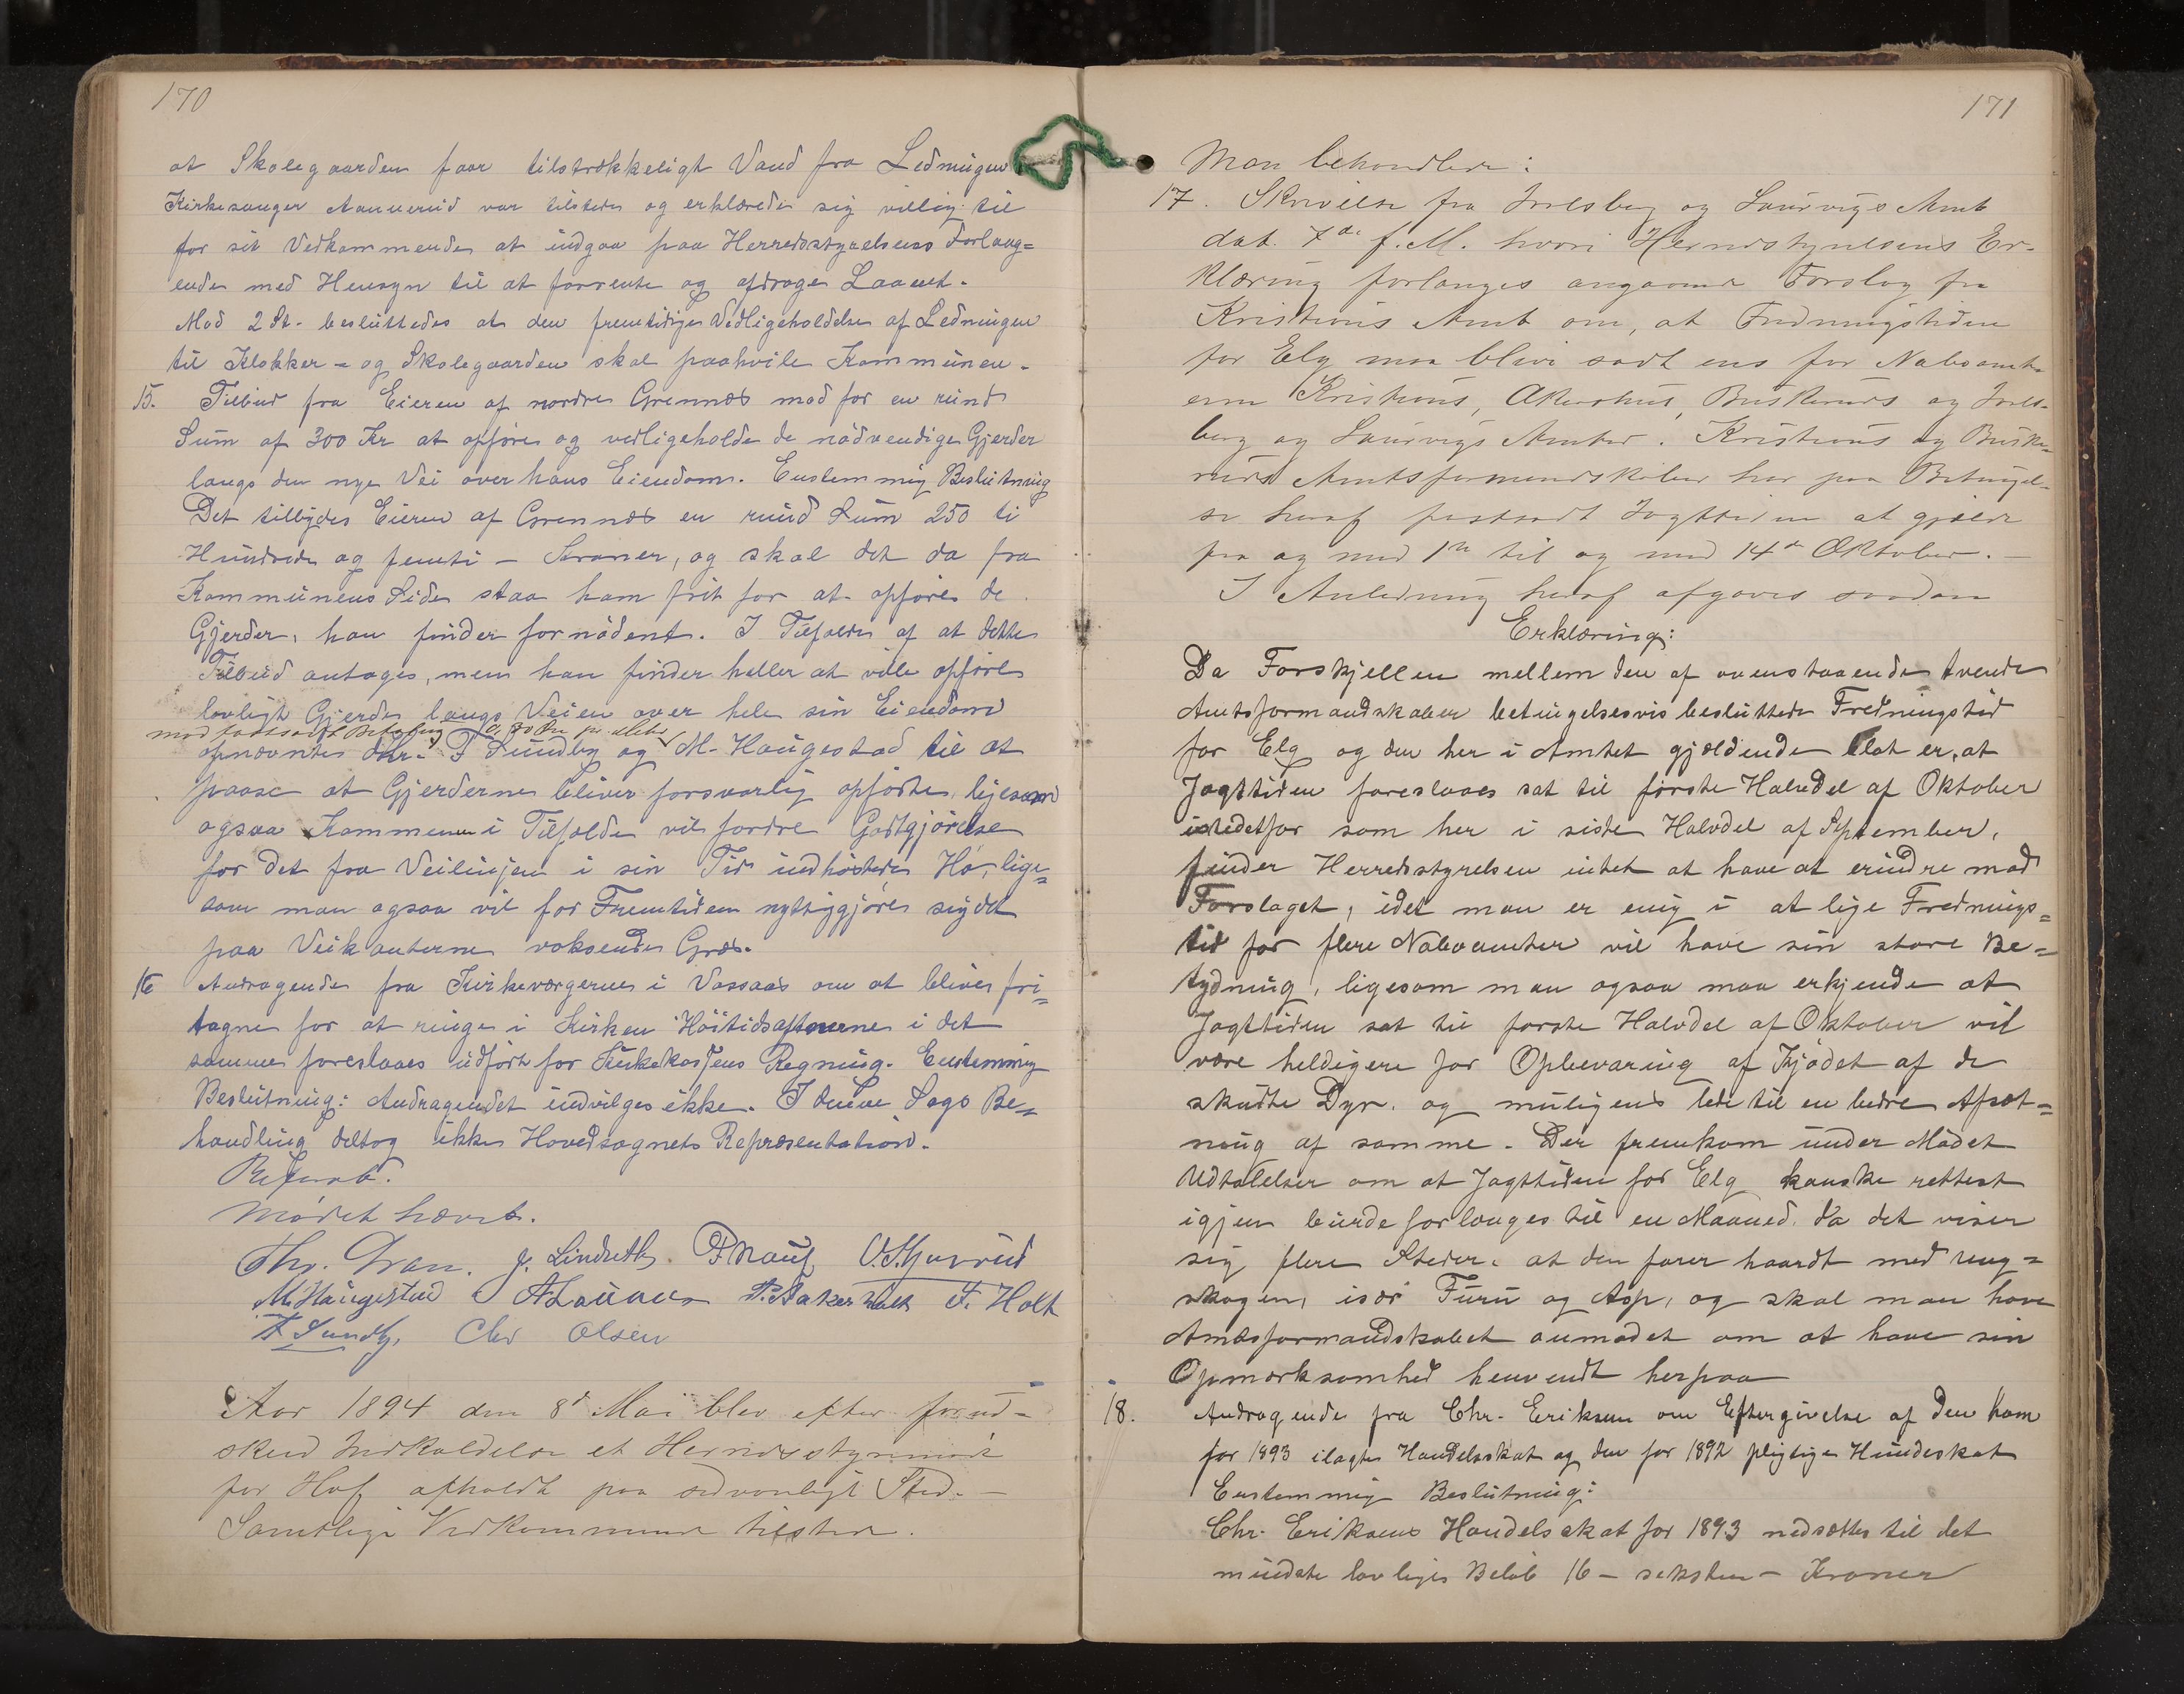 170
at Skolegaarden faar tilstrækkeligt Vand fra Ledningen
Kirkesanger Aannerud var tilstede og erklærede sig villig til
for sit Vedkommende at indgaa paa Herredsstyrelsens Forlang=
ende med Hensyn til at forrente og afdrage Laanet.
Mod 2 St. besluttedes at den fremtidige Vedligeholdelse af Ledningen
til Klokker- og Skolegaarden skal paahvile Kommunen.
15. Tilbud fra Eieren af nordre Grennes mod for en rund
Sum af 300 Kr at opføre og vedligeholde de nødvendige Gjerder
langs den nye Vei over hans Eiendom. Enstemmig Beslutning
Det tilbydes Eieren af Grennes en rund Sum 250 ti
Hundrede og femti - Kroner, og skal det da fra
Kommunens Side staa ham frit for at opføre de
Gjerder, han finder fornødent. I Tilfælde af at dette
Tilbud antages, men han finder heller at ville opføre
lovligt Gjerde langs Veien over hele sin Eiendom
mod fastsat Betaling a 30 Øre pr. Meter
opnævntes Hr. F Sundby og M. Haugestad til at
paase at Gjerderne bliver forsvarlig opførte, ligesom
ogsaa Kommunen i Tilfælde vil fordre Godtgjørelse
for det fra Veilinjen i sin Tid indhøstede Hø, lige=
som man ogsaa vil for Fremtiden nyttiggjøre sig det
paa Veikanterne voksende Græs.
16 Andragende fra Kirkeværgerne i Vassaas om at blive fri=
tagne for at ringe i Kirken Høitidsaftnerne i det
samme foreslaaes udført for Kirkekassens Regning. Enstemmig
Beslutning: Andragendet indvilges ikke. I denne Sags Be=
handling deltog ikke Hovedsognets Repræsentation.
Referat.
Mødet hævet.
Chr. Dran. J. Lindseth
M. Haugestad F. Holt
F Sundby. Chr Olsen
Aar 1894 den 8d Mai blev efter forud=
skeed Indkaldelse et Herredsstyremøde
for Hof afholdt paa sedvanligt Sted.-
Samtlige Vedkommende tilstede.
171
Man behandlede:
17. Skrivelse fra Jarlsberg og Laurvigs Amt
dat. 7de f.M. hvori Herredsstyrelsens Er-
klæring forlanges angaaende Forslag fra
Kristians Amt om, at Fredningstiden
for Elg maa blive sadt ens for Naboamt-
erne Kristians, Akershus, Buskeruds og Jarls-
berg og Laurvigs Amter. Kristians og Buske-
ruds Amtsformandskaber har paa Betingel-
se heraf fastsadt Jagttiden at gjælde
fra og med 1ste til og med 14de Oktober.-
I Anledning heraf afgaves saadan
Erklæring:
Da Forskjellen mellem den af ovenstaaende tvende
Amtsformandskaber betingelsesvis besluttede Fredningstid
for Elg og den her i Amtet gjældende blot er, at
Jagttiden foreslaaes sat til første Halvdel af Oktober
istedetfor som her i sidste Halvdel af September,
finder Herredsstyrelsen intet at have at erindre mod
Forslaget, idet man er enig i at lige Frednings=
tid for flere Naboamter vil have sin store Be=
tydning, ligesom man ogsaa maa erkjende at
Jagttiden sat til første Halvdel af Oktober vil
være heldigere for Opbevaring af Kjødet af de
skudte Dyr, og muligens lede til en bedre Afsæt=
ning af samme. Der fremkom under Mødet
Udtalelser om at Jagttiden for Elg kanske rettest
igjen burde forlænges til en Maaned, da det viser
sig flere Steder, at den farer haardt med ung=
skogen, især Furu og Asp, og skal man have
Amtsformandskabet anmodet om at have sin
Opmærksomhed henvendt herpaa
18. Andragende fra Chr. Eriksen om Eftergivelse af den ham
for 1893 ilagte Handelsskat og den for 1892 pligtige Hundeskat
Enstemmig Beslutning:
Chr. Eriksens Handelsskat for 1893 nedsættes til det
mindste lovlige Beløb 16 - seksten - Kroner